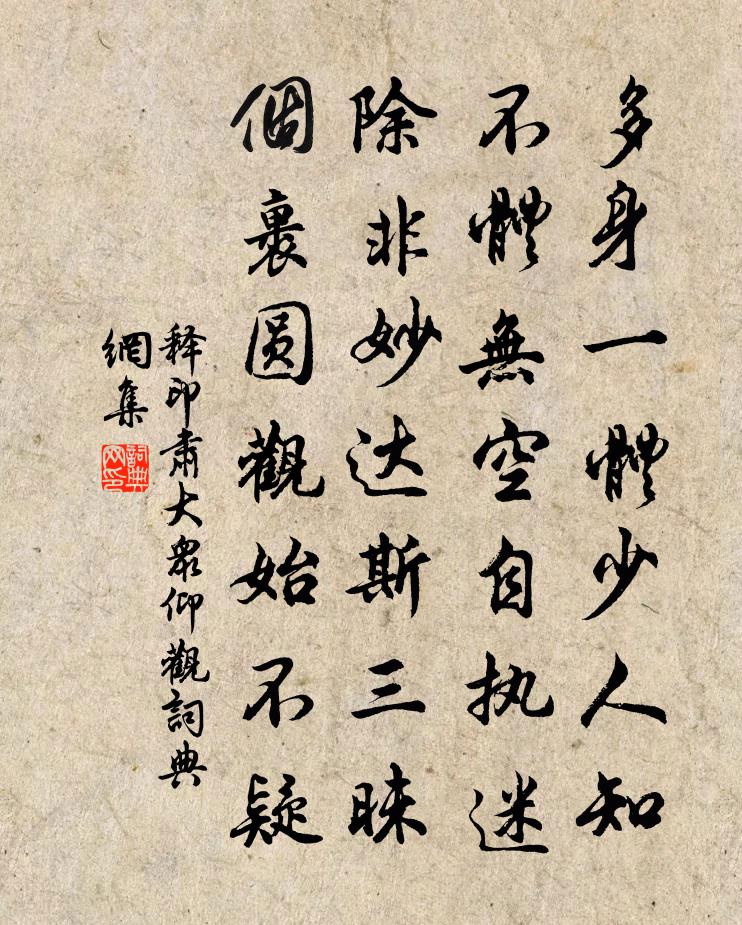 多身一體少人知
不體無空自执迷
除非妙达斯三昧
個裏圆觀始不疑
释印肃大眾仰觀詞典
網集
詞典
网印